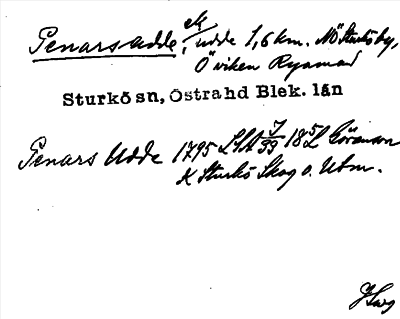 Penarsudde, ek, udde 1,6 km. NÖ Sturkö by,
Ö viken Ryamad
Sturkö sn, Östra hd Blek. län
Penars Udde 1795 LSA 18 Göranson
K Sturkö Skog o. Utm.